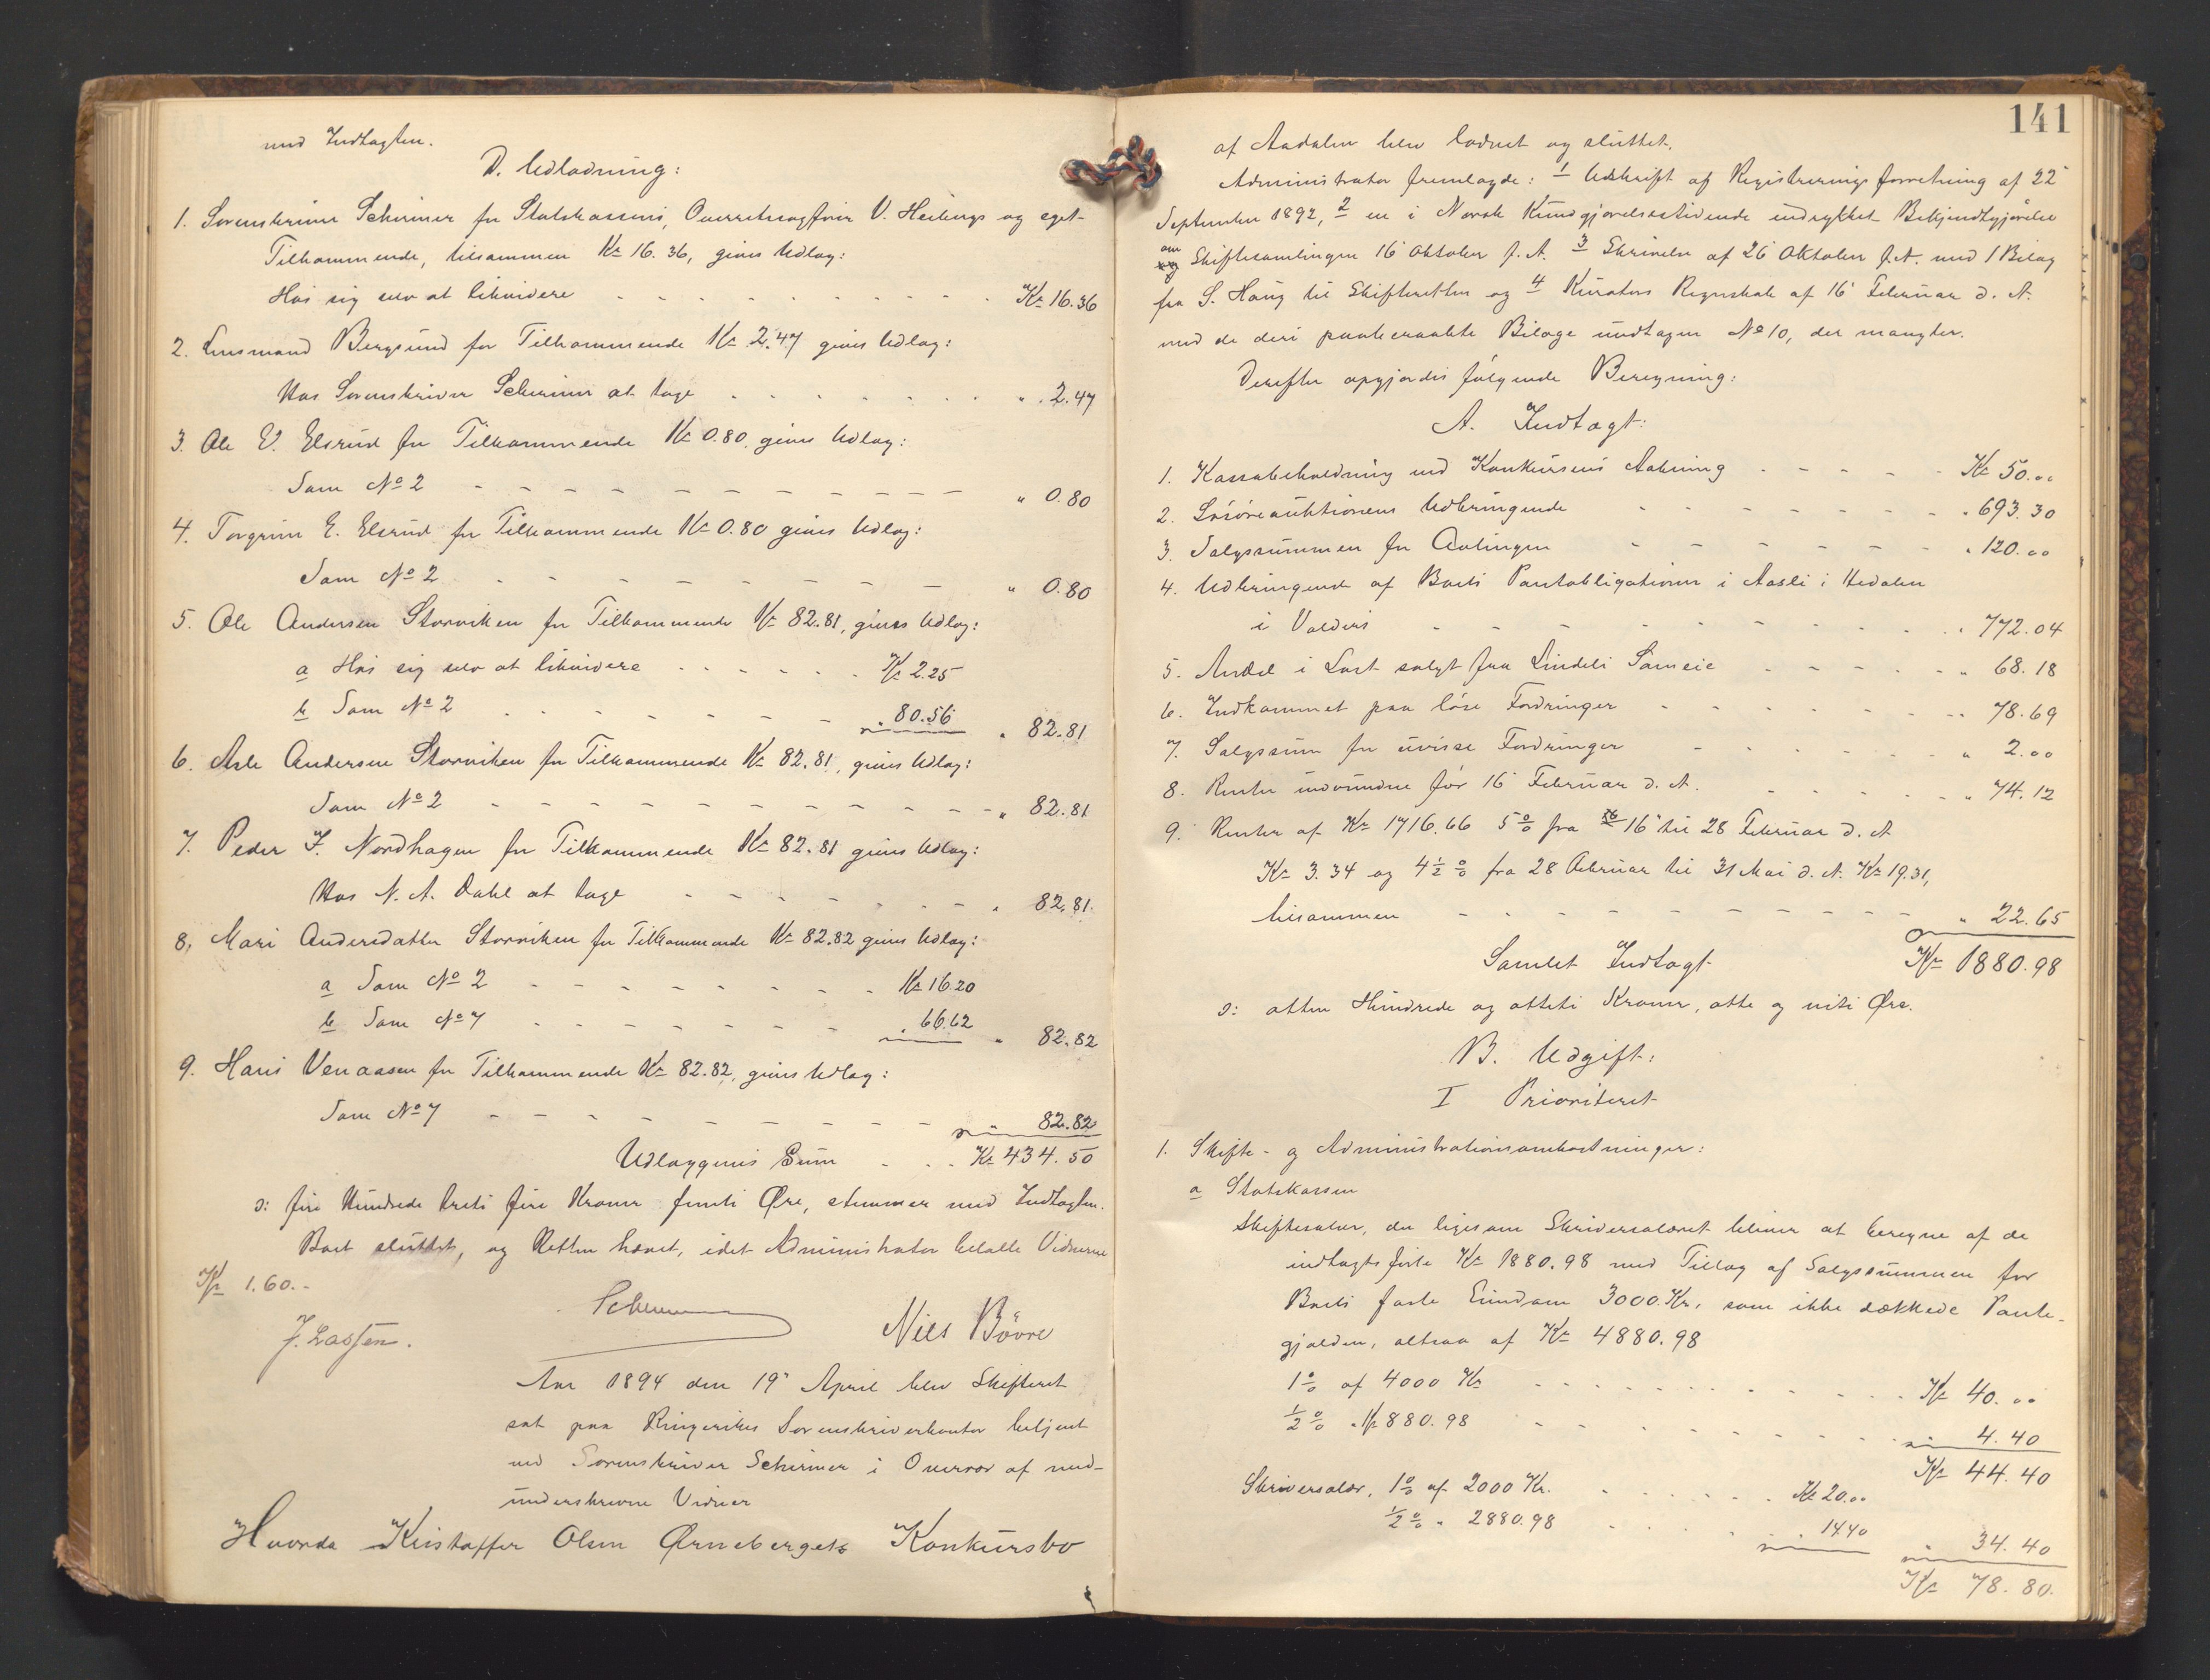 med Indtægten.
D. Udlodning:
1. Sorenskriver Schirmer for Statskassens, Overretssagfører V. Heibergs og eget
Tilkommende, tilsammen Kr 16.36, gives Udlæg:
Hos sig selv at likvidere - - - Kr. 16.36
2. Lensmand Bergsund for Tilkommende Kr 2.47 gives Udlæg:
Hos Sorenskriver Schirmer at tage - - - " 2.47
3. Ole E. Elsrud for Tilkommende Kr 0.80, gives Udlæg:
Som No 2 - - - " 0.80
4. Torgrim E. Elsrud for Tilkommende Kr 0.80 gives Udlæg:
Som No 2 - - - " 0.80
5. Ole Andersen Storviken for Tilkommende Kr 82.81, gives Udlæg:
a Hos sig selv at likvidere - - - Kr 2.25
b Som No 2 - - - " 80.56 " 82.81
6. Asle Andersen Storviken for Tilkommende Kr 82.81, gives Udlæg:
Som No 2 - - - " 82.81
7. Peder J. Nordhagen for Tilkommende Kr 82.81 gives Udlæg:
Hos N. A. Dahl at tage - - - " 82.81.
8. Mari Andersdatter Storviken for Tilkommende Kr 82.82 gives Udlæg:
a Som No 2 - - - Kr 16.20
b Som No 7 - - - " 66.62 " 82.82
9. Hans Venaasen for Tilkommende Kr 82.82, gives Udlæg:
Som No 7 - - - " 82.82
Udlæggenes Sum - - - Kr 434.50
ɔ: fire Hundrede treti fire Kroner femti Øre, stemmer med Indtægten.
Boet sluttet, og Retten hævet, idet Administrator betalte Vidnerne
Kr 1.60.-
Schirmer
J. Lassen. Nils Bövre
Aar 1894 den 19' April blev Skifteret
sat paa Ringerikes Sorenskriverkontor betjent
ved Sorenskriver Schirmer i Overvær af ned-
underskrevne Vidner
Hvorda Kristoffer Olsen Ørnebergets Konkursbo
141
af Aadalen blev lodnet og sluttet.
Administrator fremlagde: 1 Udskrift af Registreringsforretning af 22'
September 1892, 2 en i Norsk Kundgjørelsestidende indrykket Bekjendtgjørelse
om Skiftesamlingen 16' Oktober f. A. 3 Skrivelse af 26' Oktober f. A. med 1 Bilag
fra S. Haug til Skifteretten og 4 Kurators Regnskab af 16' Februar d. A.
med de deri paaberaabte Bilage undtagen No 10, der mangler.
Derefter opgjordes følgende Beregning:
A. Indtægt:
1. Kassabeholdning ved Konkursens Aabning - - - Kr 50.00
2. Løsøreauktionens Udbringende - - - " 693.30
3. Salgssummen for Avlingen - - - " 120.00
4. Udbringende af Boets Pantobligationer i Aasli i Hedalen
i Valders - - - " 772.04
5. Andel i Last solgt fra Lindeli Sameie - - - " 68.18
6. Indkommet paa løse Fordringer - - - " 78.69
7. Salgssum for uvisse Fordringer - - - " 2.00
8. Renter indvundne før 16' Februar d. A. - - - " 74.12
9. Renter af Kr 1716.66 5 % fra 16' til 28 Februar d. A
Kr 3.34 og 4 1/2 % fra 28 Februar til 31 Mai d. A. Kr 19.31,
tilsammen - - - " 22.65
Samlet Indtægt Kr 1880.98
ɔ: atten Hundrede og otteti Kroner, otte og niti Øre.
B. Udgift:
I Prioriteret
1. Skifte- og Administrationsomkostninger:
a Statskassen
Skiftesalær, der ligesom Skriversalæret bliver at beregne af de
indtægtsførte Kr 1880.98 med Tillæg af Salgssummen for
Boets faste Eiendom 3000 Kr., som ikke dækkede Pante-
gjælden, altsaa af Kr 4880.98
1 % af 4000 Kr - - - Kr 40.00
1/2 % " Kr 880.98 - - - " 4.40
Kr 44.40
Skriversalær, 1 % af 2000 Kr. - - - Kr 20.00
1/2 % " 2880.98 - - - " 14.40 " 34.40
Kr 78.80.